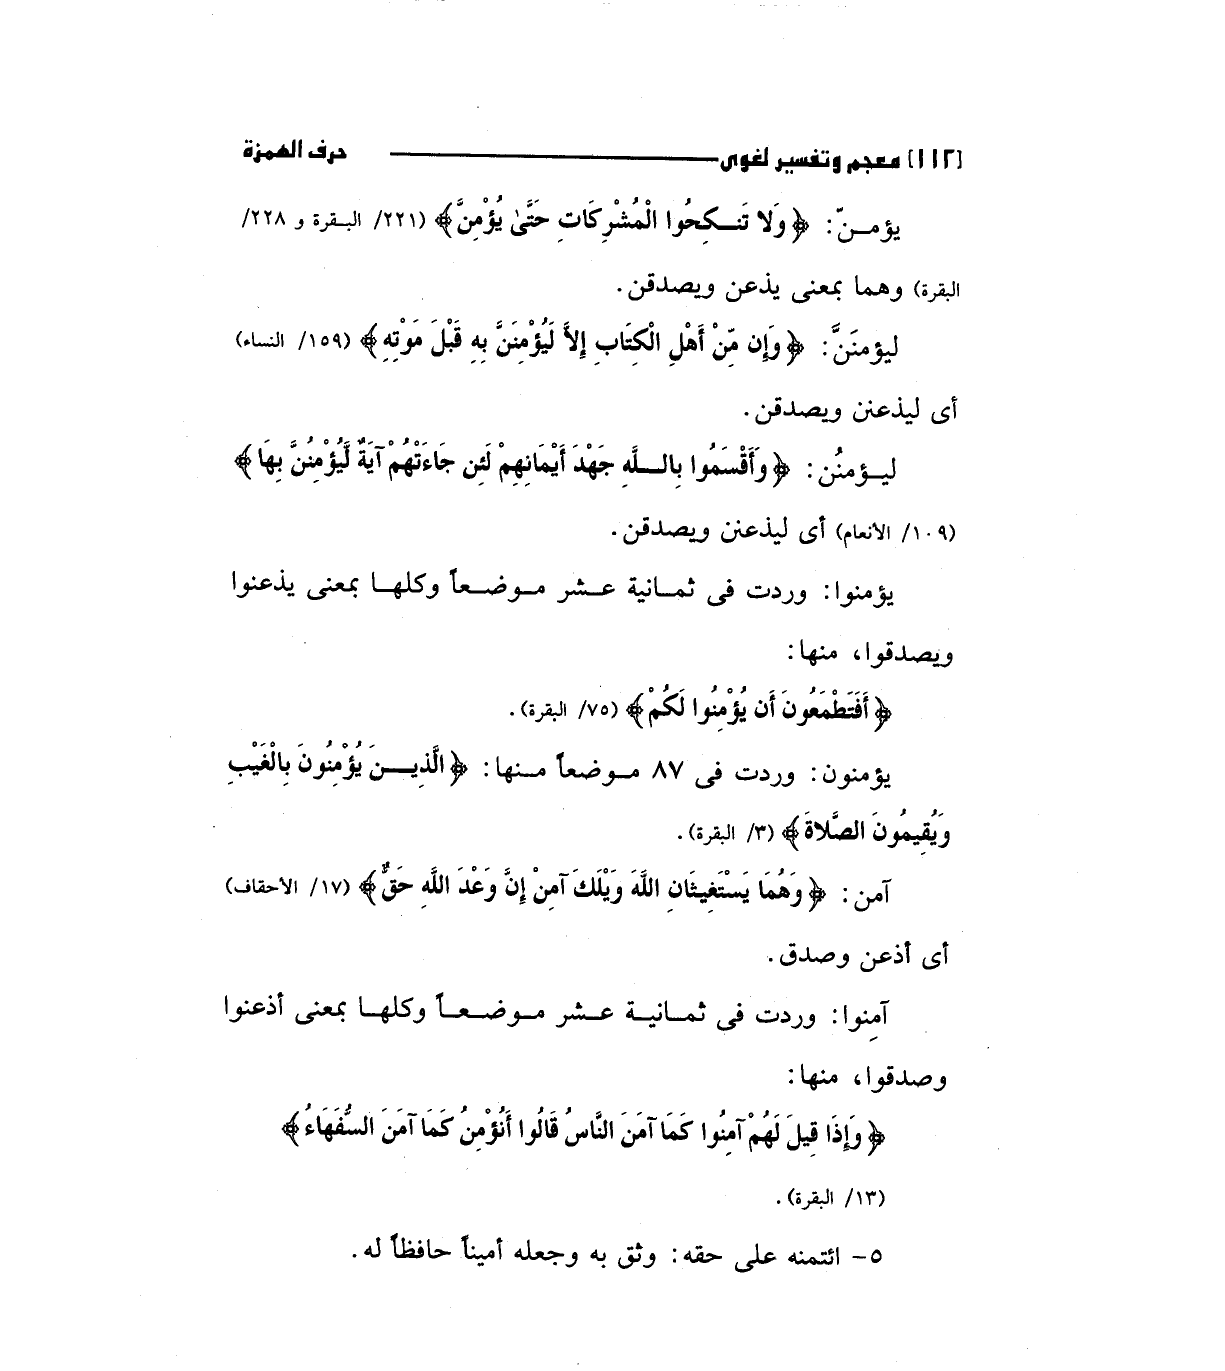 [١١٢] معجم وتفسير لغوى حرف الهمزة
يؤمـنّ: ﴿وَلا تَنـكِحُوا الْمُشْرِكَاتِ حَتَّىٰ يُؤْمِنَّ﴾ (٢٢١/ البـقرة و ٢٢٨/
البقرة) وهما بمعنى يذعن ويصدقن.
ليؤمنَنَّ: ﴿وَإِن مِّنْ أَهْلِ الْكِتَابِ إِلاَّ لَيُؤْمِنَنَّ بِهِ قَبْلَ مَوْتِهِ﴾ (١٥٩/ النساء)
أى ليذعنن ويصدقن.
ليـؤمنُن: ﴿وَأَقْسَمُوا بِالـلَّهِ جَهْدَ أَيْمَانِهِمْ لَئِن جَاءَتْهُمْ آيَةٌ لَّيُؤْمِنُنَّ بِهَا﴾
(١٠٩/ الأنعام) أى ليذعنن ويصدقن.
يؤمنوا: وردت فى ثمـانية عـشر مـوضـعاً وكلهـا بمعنى يذعنوا
ويصدقوا، منها:
﴿أَفَتَطْمَعُونَ أَن يُؤْمِنُوا لَكُمْ﴾ (٧٥/ البقرة).
يؤمنون: وردت فى ٨٧ مـوضعاً مـنها: ﴿الَّذِيـنَ يُؤْمِنُونَ بِالْغَيْبِ
وَيُقِيمُونَ الصَّلاةَ﴾ (٣/ البقرة).
آمن: ﴿وَهُمَا يَسْتَغِيثَانِ اللَّهَ وَيْلَكَ آمِنْ إِنَّ وَعْدَ اللَّهِ حَقٌّ﴾ (١٧/ الأحقاف)
أى أذعن وصدق.
آمِنوا: وردت فى ثمـانيـة عـشر مـوضـعـاً وكلهـا بمعنى أذعنوا
وصدقوا، منها:
﴿وَإِذَا قِيلَ لَهُمْ آمِنُوا كَمَا آمَنَ النَّاسُ قَالُوا أَنُؤْمِنُ كَمَا آمَنَ السُّفَهَاءُ﴾
(١٣/ البقرة).
٥- ائتمنه على حقه: وثق به وجعله أميناً حافظاً له.